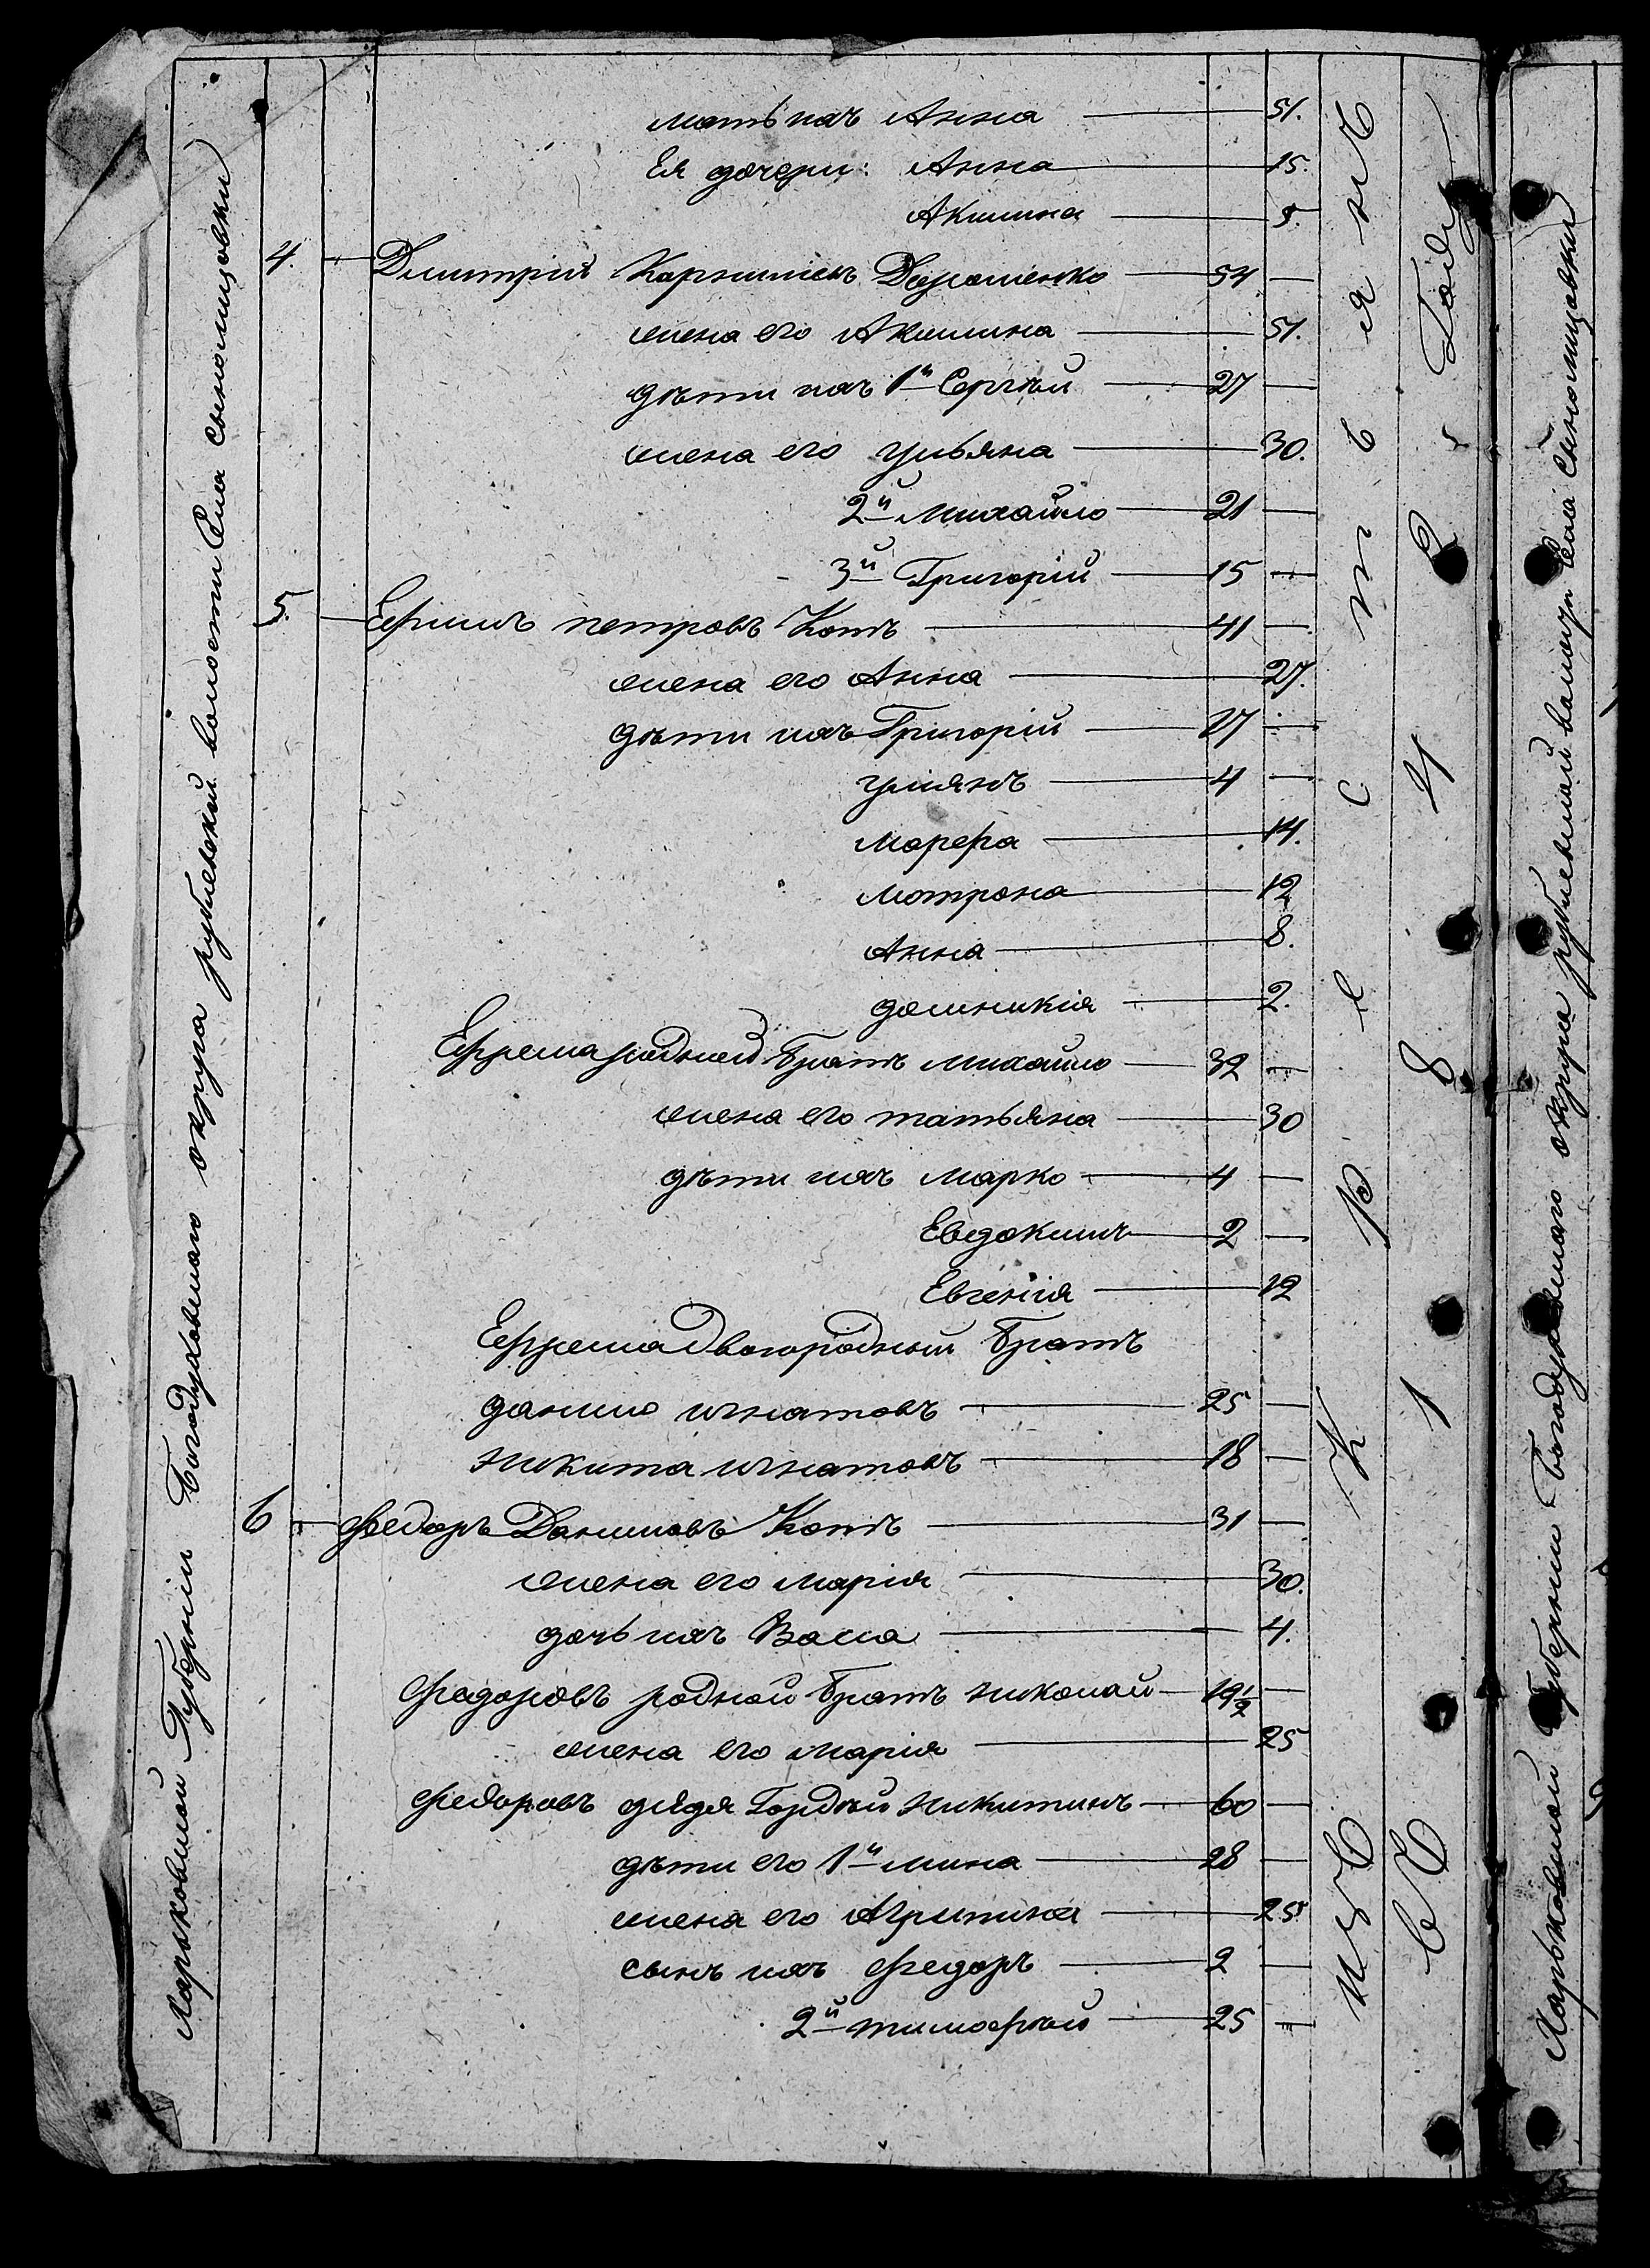 Харьковской Губерніи Богодуховскаго округа рублевской волости Села Сыномицовки
мать ихъ Анна 51.
Ея дочери: Анна 15.
Акилина 5.
4. Димитрій Корнѣинъ Дорошенко 54 —
жена его Акилина 51.
дѣти ихъ 1й Сергѣй 27 —
жена его ульяна 30.
2й михайло 21 —
3й Григорій 15 —
5. Ефримъ петровъ Котъ 41 —
жена его Анна 27.
дѣти ихъ Григорій 17 —
улиянъ 4 —
марфа 14.
мотрона 12
Анна 8.
домникія 2.
Ефрема родной братъ михайло 32 —
жена его татьяна 30
дѣти ихъ марко 4 —
Евдокимъ 2 —
Евгенія 12
Ефрема двоюродный братъ
данило игнатовъ 25 —
никита игнатовъ 18 —
6 Федоръ Даниловъ Котъ 31 —
жена его марія 30.
дочь ихъ Васса 4.
Федоровъ родной братъ николай 19½ —
жена его марія 25
Федоровъ дядя Гордѣй никитинъ 60 —
дѣти его 1й мина 28 —
жена его Агрипина 25
сынъ ихъ Федоръ 2 —
2й тимофѣй 25 —
изъ крестьянъ
въ 1842 Году
Харьковской Губерніи Богодуховскаго округа рублевской волости Села Сыномицовки